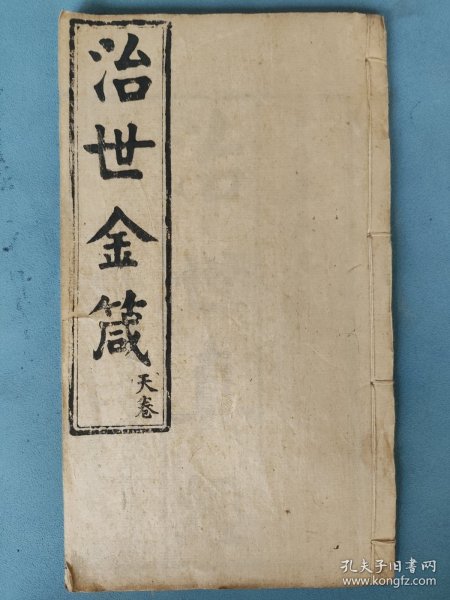 治世金箴
天卷
孔夫子旧书网
www.kongfz.com